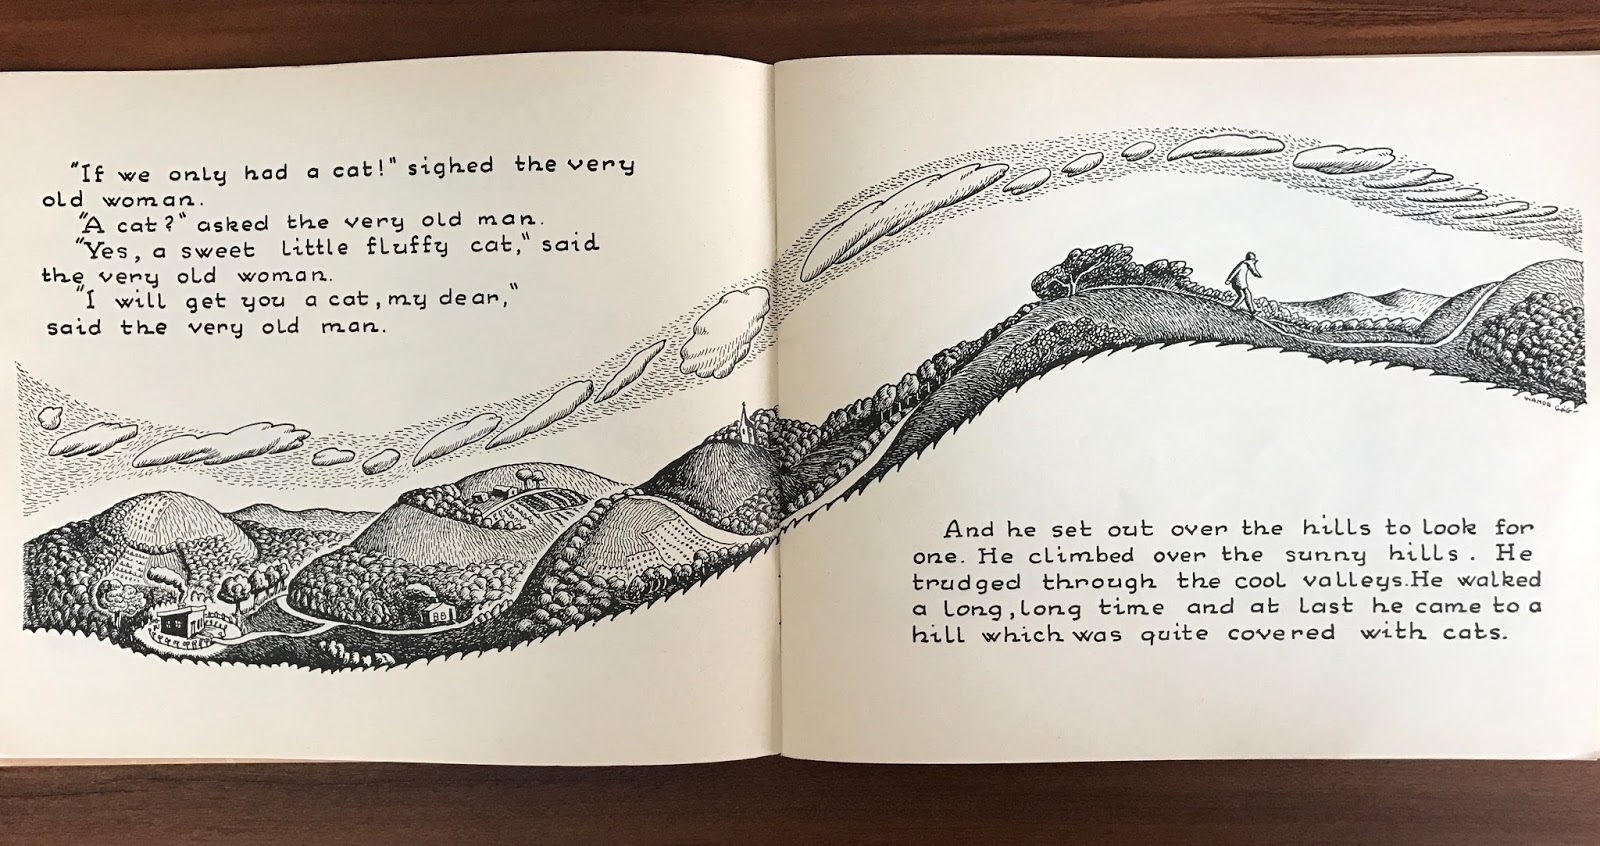 "If we only had a cat!" sighed the very
old woman.
"A cat?" asked the very old man.
"Yes, a sweet little fluffy cat," said
the very old woman.
"I will get you a cat, my dear,"
said the very old man.
WANDA GÁG
And he set out over the hills to look for
one. He climbed over the sunny hills. He
trudged through the cool valleys. He walked
a long, long time and at last he came to a
hill which was quite covered with cats.